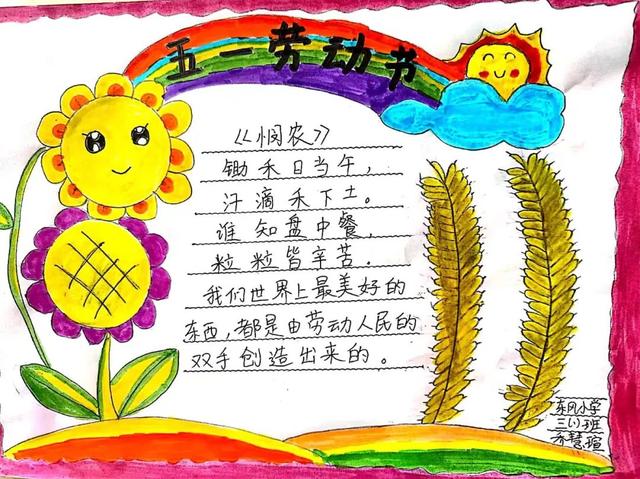 五一劳动节
《悯农》
锄禾日当午，
汗滴禾下土。
谁知盘中餐，
粒粒皆辛苦。
我们世界上最美好的
东西，都是由劳动人民的
双手创造出来的。
东风小学
三(1)班
慧瑄